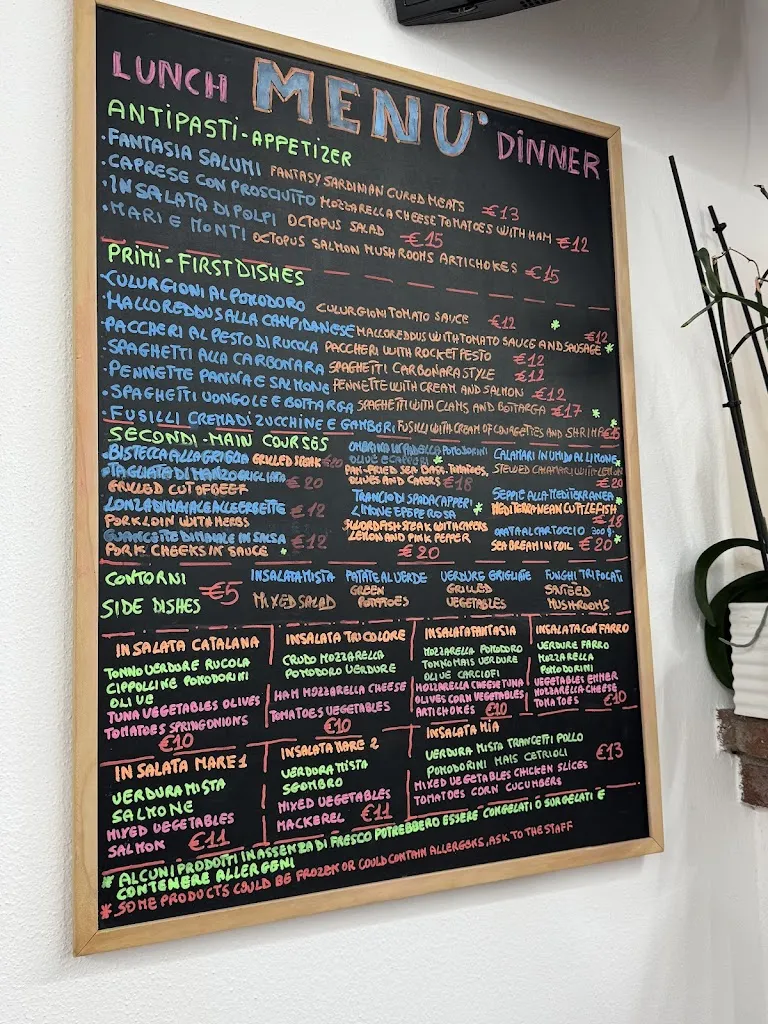 LUNCH MENU' DINNER
ANTIPASTI-APPETIZER
·FANTASIA SALUMI FANTASY SARDINIAN CURED MEATS €13
·CAPRESE CON PROSCIUTTO MOZZARELLA CHEESE TOMATOES WITH HAM €12
·INSALATA DI POLPI OCTOPUS SALAD €15
·MARI E MONTI OCTOPUS SALMON MUSHROOMS ARTICHOKES €15
PRIMI-FIRST DISHES
·CULURGIONI AL POMODORO CULURGIONI TOMATO SAUCE €12
·MALLOREDDUS ALLA CAMPIDANESE MALLOREDDUS WITH TOMATO SAUCE AND SAUSAGE €12 *
·PACCHERI AL PESTO DI RUCOLA PACCHERI WITH ROCKET PESTO €12
·SPAGHETTI ALLA CARBONARA SPAGHETTI CARBONARA STYLE €12
·PENNETTE PANNA E SALMONE PENNETTE WITH CREAM AND SALMON €12
·SPAGHETTI VONGOLE E BOTTARGA SPAGHETTI WITH CLAMS AND BOTTARGA €17 *
·FUSILLI CREMA DI ZUCCHINE E GAMBERI FUSILLI WITH CREAM OF COURGETTES AND SHRIMP
SECONDI-MAIN COURSES
·BISTECCA ALLA GRIGLIA GRILLED STEAK €20
·TAGLIATA DI MANZO GRIGLIATA €20
GRILLED CUT OF BEEF
LONZA DI MAIALE ALLE ERBETTE €12
PORK LOIN WITH HERBS
GUANCETTE DI MAIALE IN SALSA €12
PORK CHEEKS IN SAUCE *
OMBRINA IN PADELLA POMODORINI
OLIVE E CAPPERI *
PAN-FRIED SEA BASS, TOMATOES,
OLIVES AND CAPERS €18
TRANCIO DI SPADA CAPPERI
LIMONE E PEPE ROSA *
SWORDFISH STEAK WITH CAPERS
LEMON AND PINK PEPPER
€20
CALAMARI IN UMIDO AL LIMONE *
STEWED CALAMARI WITH LEMON
€20
SEPPIE ALLA MEDITERRANEA *
MEDITERRANEAN CUTTLEFISH
€18
ORATA AL CARTOCCIO 300 g. *
SEA BREAM IN FOIL €20 *
CONTORNI
SIDE DISHES €5
INSALATA MISTA
MIXED SALAD
PATATE AL VERDE
GREEN
POTATOES
VERDURE GRIGLIATE
GRILLED
VEGETABLES
FUNGHI TRIFOLATI
SAUTEED
MUSHROOMS
INSALATA CATALANA
TONNO VERDURE RUCOLA
CIPOLLINE POMODORINI
OLIVE
TUNA VEGETABLES OLIVES
TOMATOES SPRING ONIONS
€10
INSALATA TRICOLORE
CRUDO MOZZARELLA
POMODORO VERDURE
HAM MOZZARELLA CHEESE
TOMATOES VEGETABLES
€10
INSALATA FANTASIA
MOZZARELLA POMODORO
TONNO MAIS VERDURE
OLIVE CARCIOFI
MOZZARELLA CHEESE TUNA
OLIVES CORN VEGETABLES
ARTICHOKES €10
INSALATA CON FARRO
VERDURE FARRO
MOZZARELLA
POMODORINI
VEGETABLES EMMER
MOZZARELLA CHEESE
TOMATOES €10
INSALATA MARE 1
VERDURA MISTA
SALMONE
MIXED VEGETABLES
SALMON €11
INSALATA MARE 2
VERDURA MISTA
SGOMBRO
MIXED VEGETABLES
MACKEREL €11
INSALATA MIA
VERDURA MISTA TRANCETTI POLLO
POMODORINI MAIS CETRIOLI €13
MIXED VEGETABLES CHICKEN SLICES
TOMATOES CORN CUCUMBERS
* ALCUNI PRODOTTI IN ASSENZA DI FRESCO POTREBBERO ESSERE CONGELATI O SURGELATI E
CONTENERE ALLERGENI
* SOME PRODUCTS COULD BE FROZEN OR COULD CONTAIN ALLERGENS, ASK TO THE STAFF